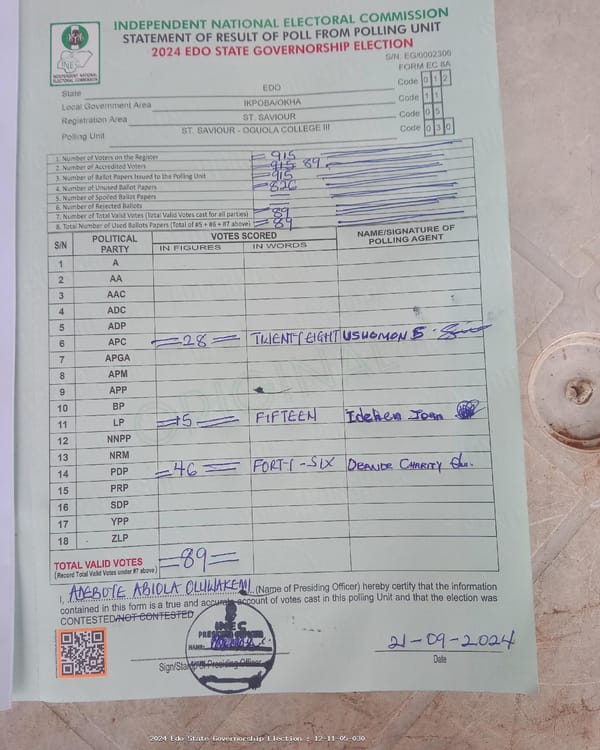 INDEPENDENT NATIONAL ELECTORAL COMMISSION
STATEMENT OF RESULT OF POLL FROM POLLING UNIT
2024 EDO STATE GOVERNORSHIP ELECTION
INEC
INDEPENDENT NATIONAL ELECTORAL COMMISSION
S/N: EG/0002306
FORM EC 8A
State EDO Code 0 1 2
Local Government Area IKPOBA/OKHA Code 1 1
Registration Area ST. SAVIOUR Code 0 5
Polling Unit ST. SAVIOUR - OGUOLA COLLEGE III Code 0 3 0
1. Number of Voters on the Register 915
2. Number of Accredited Voters 915 89
3. Number of Ballot Papers Issued to the Polling Unit 915
4. Number of Unused Ballot Papers 826
5. Number of Spoiled Ballot Papers
6. Number of Rejected Ballots
7. Number of Total Valid Votes (Total Valid Votes cast for all parties) 89
8. Total Number of Used Ballots Papers (Total of #5 + #6 + #7 above) 89
S/N POLITICAL PARTY VOTES SCORED NAME/SIGNATURE OF POLLING AGENT
IN FIGURES IN WORDS
1 A
2 AA
3 AAC
4 ADC
5 ADP
6 APC =28= TWENTY EIGHT USUOMON E.
7 APGA
8 APM
9 APP
10 BP
11 LP =15= FIFTEEN Idehen Joan
12 NNPP
13 NRM
14 PDP =46= FORTY-SIX CHARITY
15 PRP
16 SDP
17 YPP
18 ZLP
TOTAL VALID VOTES =89=
(Record Total Valid Votes under #7 above)
I, ADEBOTE ABIOLA OLUWAKEMI (Name of Presiding Officer) hereby certify that the information
contained in this form is a true and accurate account of votes cast in this polling Unit and that the election was
CONTESTED/NOT CONTESTED
INEC
PRESIDING OFFICER
NAME:
Sign/Stamp of Presiding Officer
21-09-2024
Date
2024 Edo State Governorship Election : 12-11-05-030